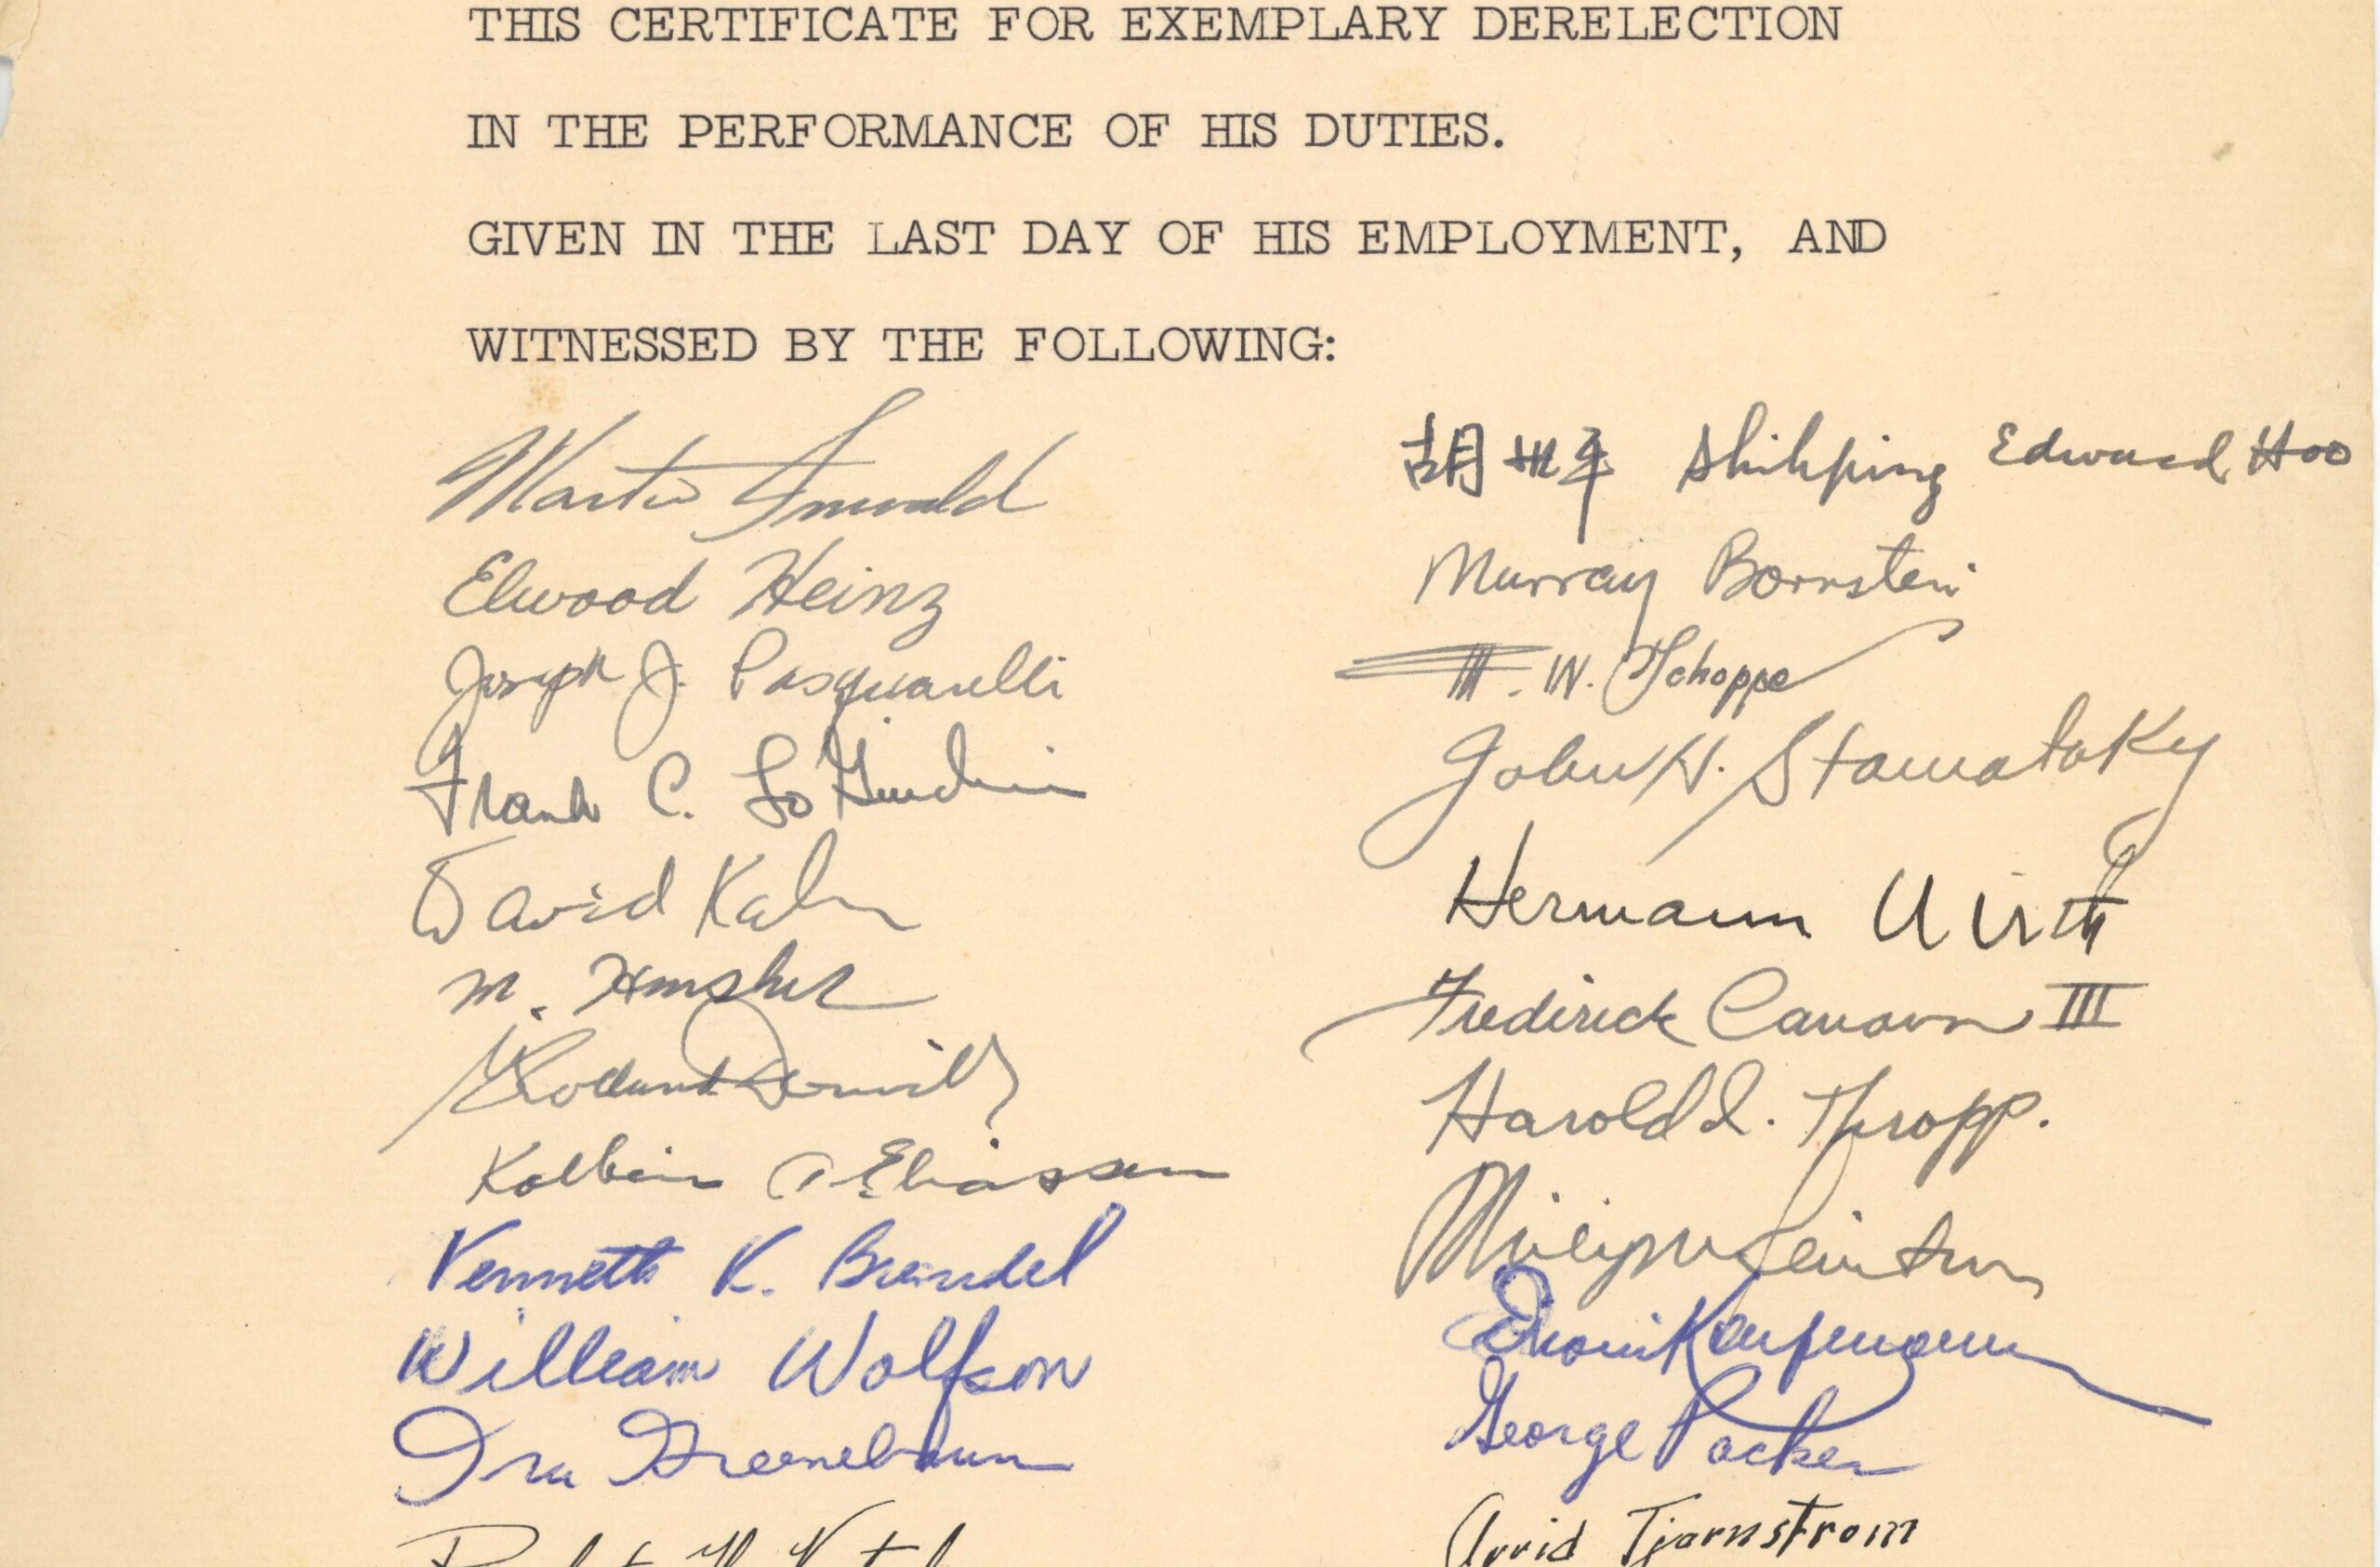 THIS CERTIFICATE FOR EXEMPLARY DERELECTION
IN THE PERFORMANCE OF HIS DUTIES.
GIVEN IN THE LAST DAY OF HIS EMPLOYMENT, AND
WITNESSED BY THE FOLLOWING:
Martin
Elwood Heinz
Joseph J. Pasquarelli
Frank C. Lo
David Kahn
M.
Kolbein Eliassen
Kenneth K. Brendel
William Wolfson
Ira Greenebaum
胡世平 Shihping Edward Hoo
Murray Bornstein
W. Schoppe
John H. Stamataky
Hermann Wirth
Frederick III
Harold I. Thropp.
Kaufmann
George Packer
Arvid Tjarnstrom